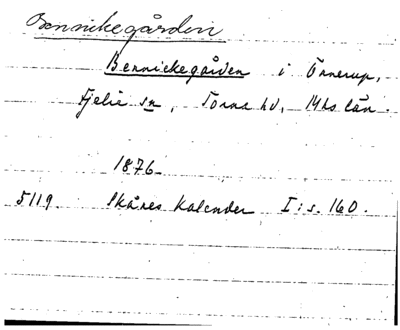 Bennickegården
Bennickegården i Önnerup,
Fjelie sn, Torna hd, Mhs län.
1876
5119. Skånes Kalender I:s. 160.